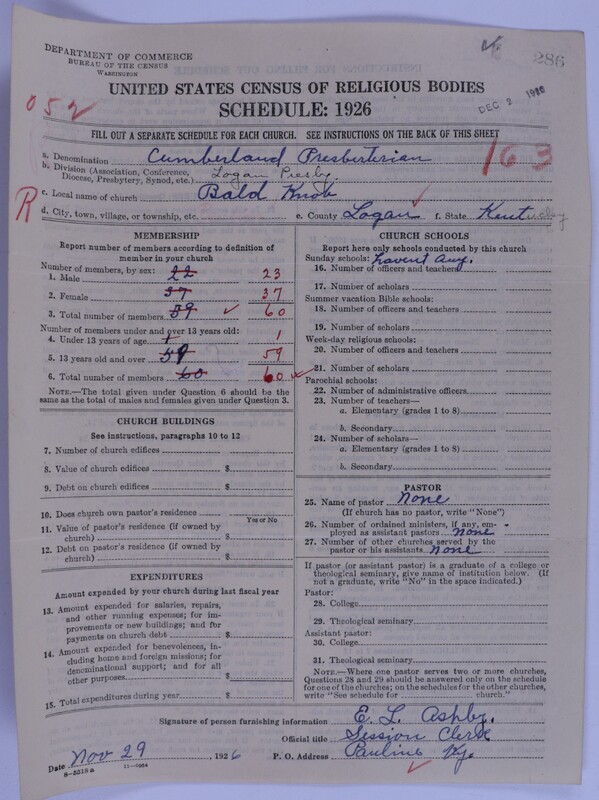 DEPARTMENT OF COMMERCE
BUREAU OF THE CENSUS
WASHINGTON
286
UNITED STATES CENSUS OF RELIGIOUS BODIES
DEC 2 1926
052
SCHEDULE: 1926
FILL OUT A SEPARATE SCHEDULE FOR EACH CHURCH. SEE INSTRUCTIONS ON THE BACK OF THIS SHEET
a. Denomination Cumberland Presbyterian
163
b. Division (Association, Conference, Diocese, Presbytery, Synod, etc.) Logan Presby.
c. Local name of church Bald Knob
R
d. City, town, village, or township, etc. e. County Logan f. State Kentucky
MEMBERSHIP
Report number of members according to definition of
member in your church
Number of members, by sex:
1. Male 22 23
2. Female 37 37
3. Total number of members 59 60
Number of members under and over 13 years old:
4. Under 13 years of age 1 1
5. 13 years old and over 59 59
6. Total number of members 60 60
NOTE.—The total given under Question 6 should be the
same as the total of males and females given under Question 3.
CHURCH BUILDINGS
See instructions, paragraphs 10 to 12
7. Number of church edifices
8. Value of church edifices $
9. Debt on church edifices $
10. Does church own pastor's residence
Yes or No
11. Value of pastor's residence (if owned by
church) $
12. Debt on pastor's residence (if owned by
church) $
EXPENDITURES
Amount expended by your church during last fiscal year
13. Amount expended for salaries, repairs,
and other running expenses; for im-
provements or new buildings; and for
payments on church debt $
14. Amount expended for benevolences, in-
cluding home and foreign missions; for
denominational support; and for all
other purposes $
15. Total expenditures during year $
CHURCH SCHOOLS
Report here only schools conducted by this church
Sunday schools: havent any.
16. Number of officers and teachers
17. Number of scholars
Summer vacation Bible schools:
18. Number of officers and teachers
19. Number of scholars
Week-day religious schools:
20. Number of officers and teachers
21. Number of scholars
Parochial schools:
22. Number of administrative officers
23. Number of teachers—
a. Elementary (grades 1 to 8)
b. Secondary
24. Number of scholars—
a. Elementary (grades 1 to 8)
b. Secondary
PASTOR
25. Name of pastor None
(If church has no pastor, write "None")
26. Number of ordained ministers, if any, em-
ployed as assistant pastors None
27. Number of other churches served by the
pastor or his assistants None
If pastor (or assistant pastor) is a graduate of a college or
theological seminary, give name of institution below. (If
not a graduate, write "No" in the space indicated.)
Pastor:
28. College
29. Theological seminary
Assistant pastor:
30. College
31. Theological seminary
NOTE.—Where one pastor serves two or more churches,
Questions 28 and 29 should be answered only on the schedule
for one of the churches; on the schedules for the other churches,
write "See schedule for church."
Signature of person furnishing information E. L. Ashby.
Official title Session Clerk
Date Nov 29, 1926 P. O. Address Pauline Ky.
8-5318a 11-9084